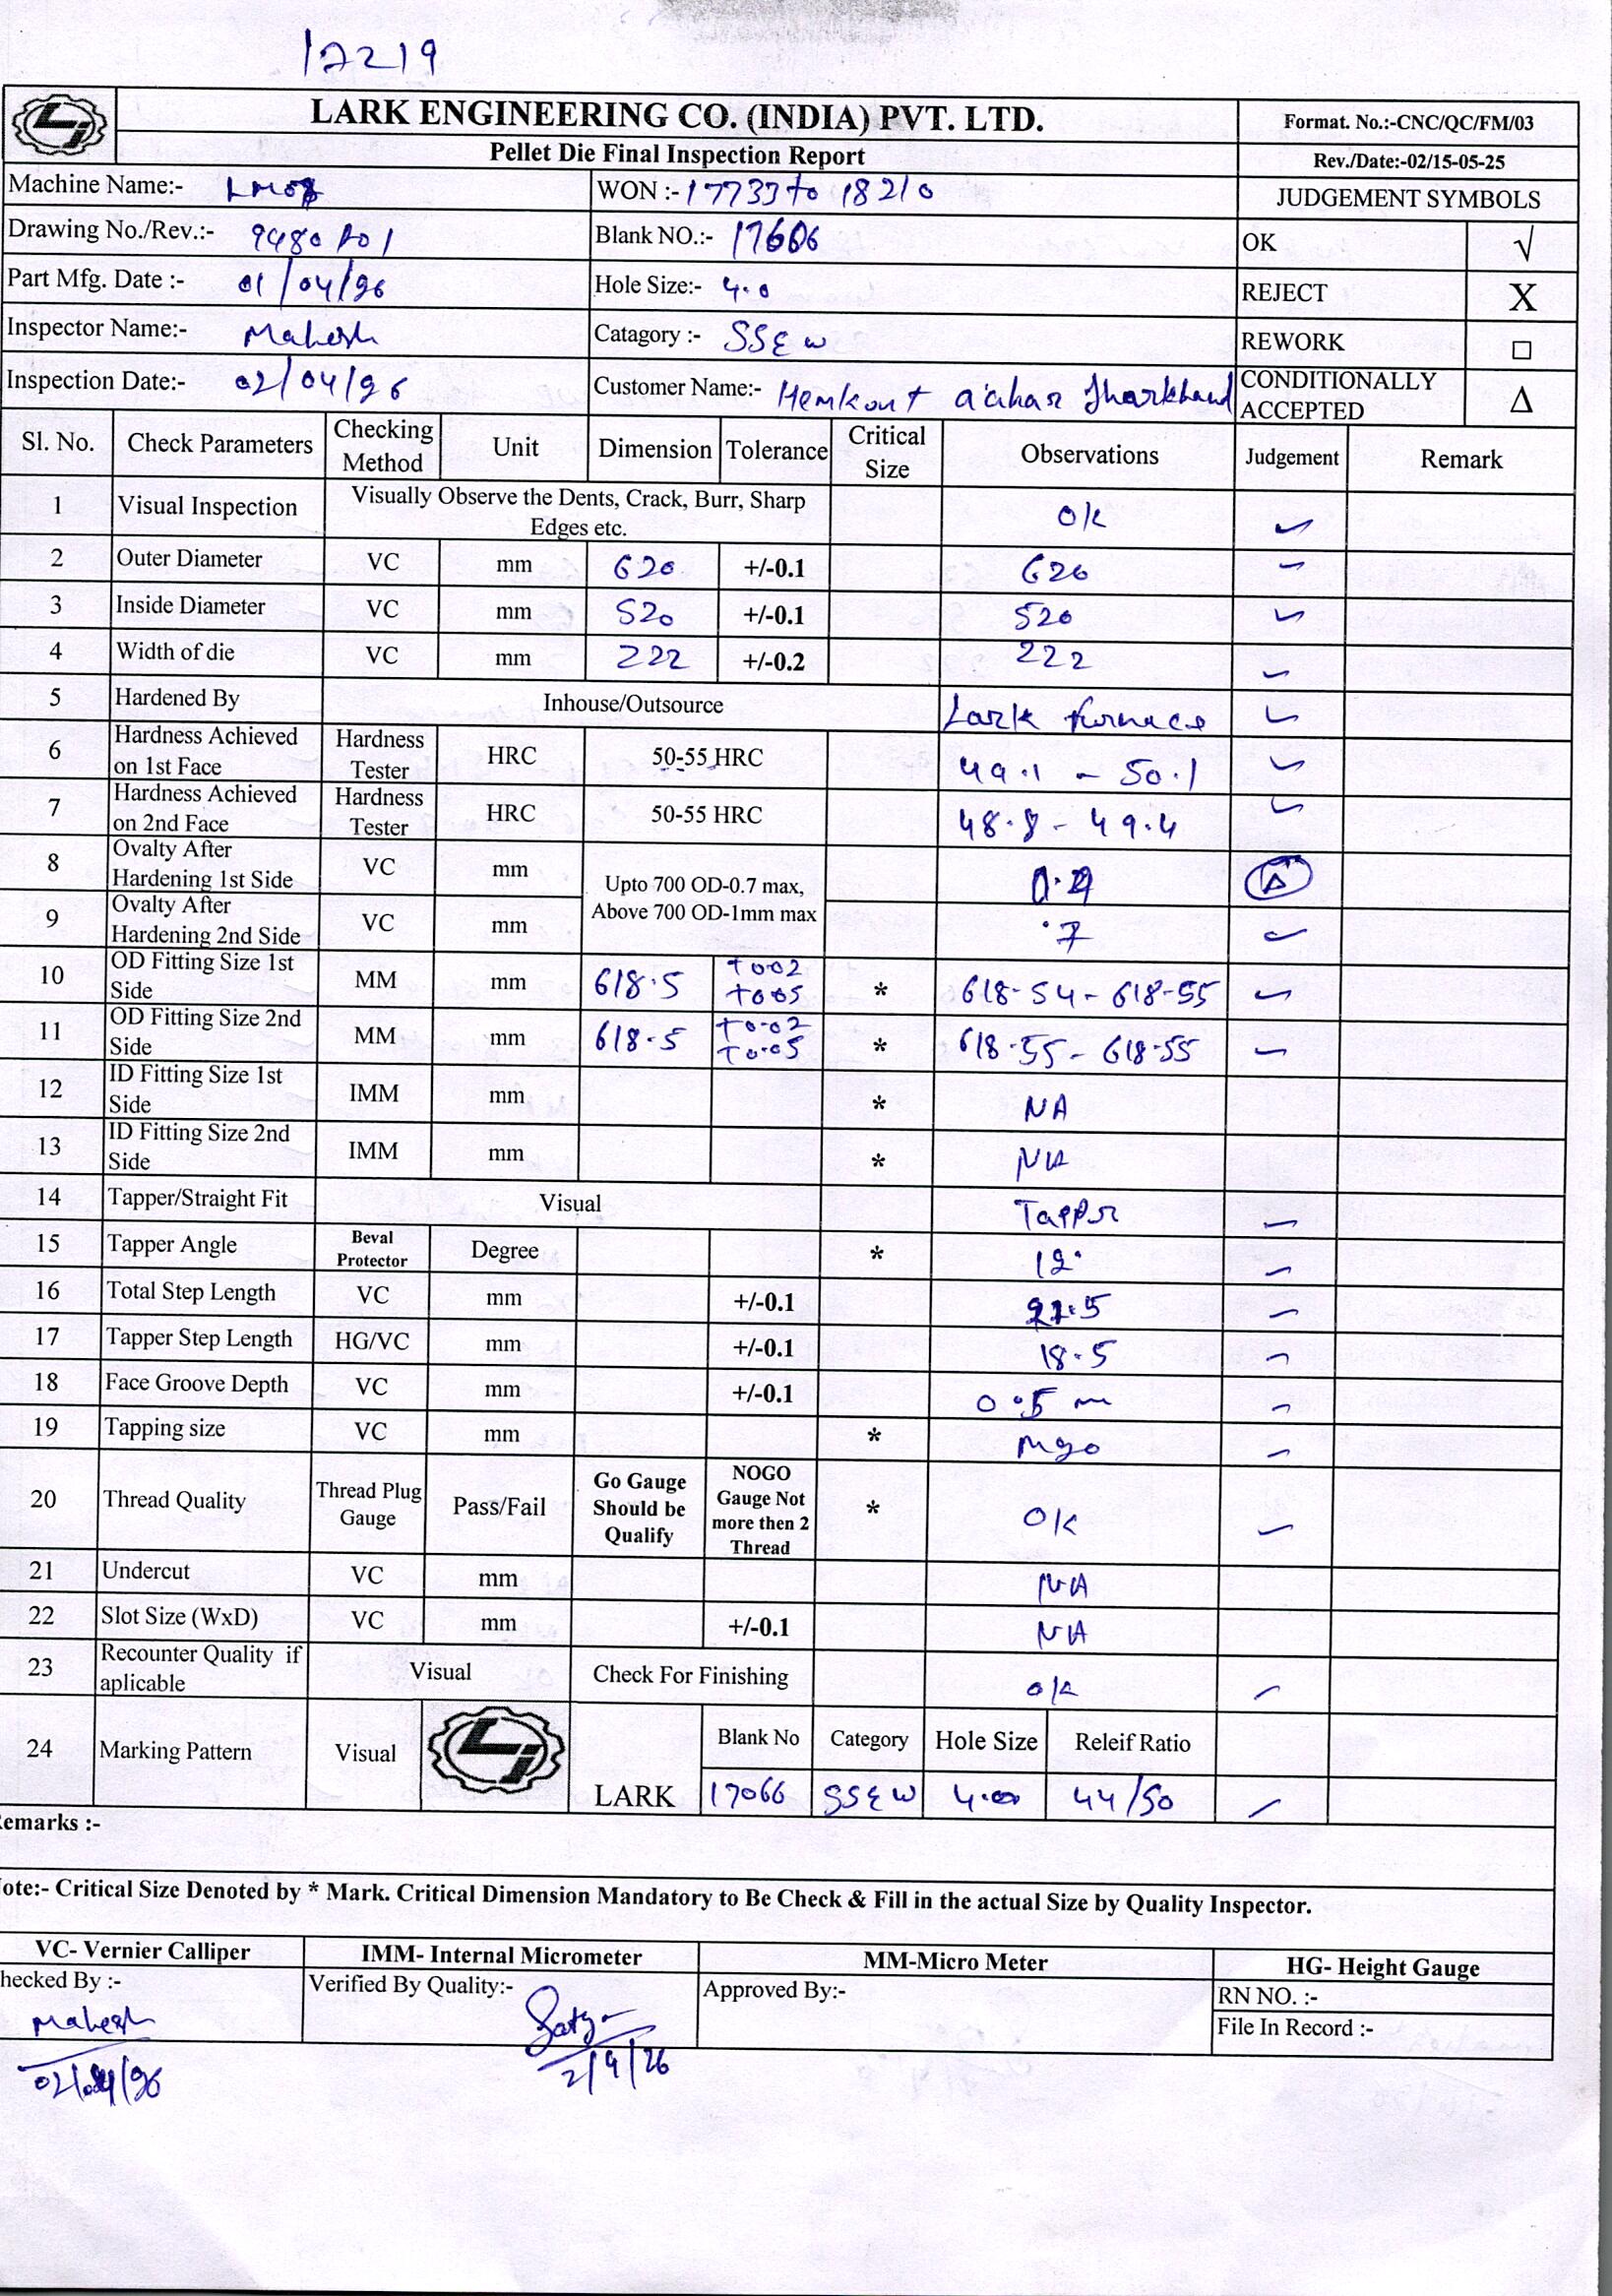 17219
LARK ENGINEERING CO. (INDIA) PVT. LTD.
Format. No.:-CNC/QC/FM/03
Pellet Die Final Inspection Report
Rev./Date:-02/15-05-25
Machine Name:-
WON :- 17733 to 18210
JUDGEMENT SYMBOLS
Drawing No./Rev.:- 9480 R01
Blank NO.:- 17606
OK √
Part Mfg. Date :- 01/04/26
Hole Size:- 4.0
REJECT X
Inspector Name:- Mahesh
Catagory :- SSEW
REWORK □
Inspection Date:- 02/04/26
Customer Name:- Hemkunt Jharkhand
CONDITIONALLY ACCEPTED Δ
Sl. No. Check Parameters Checking Method Unit Dimension Tolerance Critical Size Observations Judgement Remark
1 Visual Inspection Visually Observe the Dents, Crack, Burr, Sharp Edges etc. OK ✓
2 Outer Diameter VC mm 620 +/-0.1 620 ✓
3 Inside Diameter VC mm 520 +/-0.1 520 ✓
4 Width of die VC mm 222 +/-0.2 222 ✓
5 Hardened By Inhouse/Outsource Lark furnace ✓
6 Hardness Achieved on 1st Face Hardness Tester HRC 50-55 HRC 49.1 - 50.1 ✓
7 Hardness Achieved on 2nd Face Hardness Tester HRC 50-55 HRC 48.8 - 49.4 ✓
8 Ovalty After Hardening 1st Side VC mm Upto 700 OD-0.7 max, Above 700 OD-1mm max Δ
9 Ovalty After Hardening 2nd Side VC mm .7 ✓
10 OD Fitting Size 1st Side MM mm 618.5 +0.02 +0.05 * 618.54 - 618.55 ✓
11 OD Fitting Size 2nd Side MM mm 618.5 +0.02 +0.05 * 618.55 - 618.55 ✓
12 ID Fitting Size 1st Side IMM mm * NA
13 ID Fitting Size 2nd Side IMM mm * NA
14 Tapper/Straight Fit Visual Tapper ✓
15 Tapper Angle Beval Protector Degree * 12° ✓
16 Total Step Length VC mm +/-0.1 ✓
17 Tapper Step Length HG/VC mm +/-0.1 18.5 ✓
18 Face Groove Depth VC mm +/-0.1 0.5 m ✓
19 Tapping size VC mm * M20 ✓
20 Thread Quality Thread Plug Gauge Pass/Fail Go Gauge Should be Qualify NOGO Gauge Not more then 2 Thread * OK ✓
21 Undercut VC mm NA
22 Slot Size (WxD) VC mm +/-0.1 NA
23 Recounter Quality if aplicable Visual Check For Finishing OK ✓
24 Marking Pattern Visual LARK Blank No Category Hole Size Releif Ratio
17066 SSEW 4.00 44/50 ✓
emarks :-
ote:- Critical Size Denoted by * Mark. Critical Dimension Mandatory to Be Check & Fill in the actual Size by Quality Inspector.
VC- Vernier Calliper IMM- Internal Micrometer MM-Micro Meter HG- Height Gauge
hecked By :- Mahesh
Verified By Quality:- Satya
Approved By:-
RN NO. :-
File In Record :-
02/04/26
2/4/26